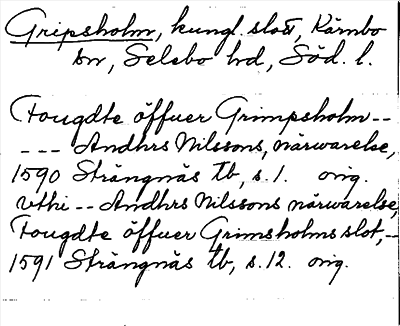 Gripsholm, kungl. slott, Kärnbo
sn, Selebo hd, Söd. l.
Fougdte öffuer Grimpsholm --
--- Andhrs Nilssons, närwarelse,
1590 Strängnäs tb, s. 1. orig.
vthi -- Andhrs Nilssons närwarelse,
Fougdte öffuer Grimsholms slot, --
1591 Strängnäs tb, s. 12. orig.